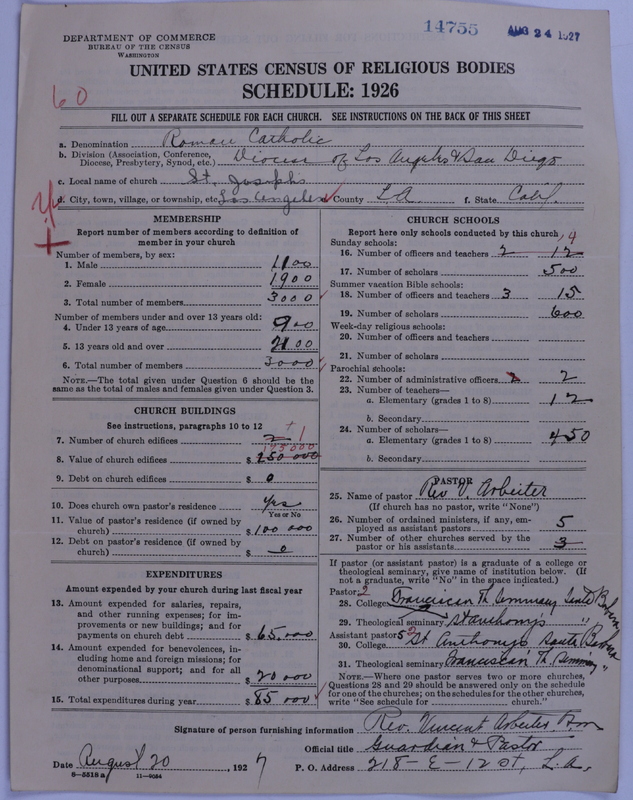 14755
AUG 24 1927
DEPARTMENT OF COMMERCE
BUREAU OF THE CENSUS
WASHINGTON
UNITED STATES CENSUS OF RELIGIOUS BODIES
SCHEDULE: 1926
60
FILL OUT A SEPARATE SCHEDULE FOR EACH CHURCH. SEE INSTRUCTIONS ON THE BACK OF THIS SHEET
a. Denomination Roman Catholic
b. Division (Association, Conference, Diocese, Presbytery, Synod, etc.) Diocese of Los Angeles & San Diego
c. Local name of church St. Josephs
d. City, town, village, or township, etc. Los Angeles County L.A. f. State Calif.
MEMBERSHIP
Report number of members according to definition of member in your church
Number of members, by sex:
1. Male 1100
2. Female 1900
3. Total number of members 3000
Number of members under and over 13 years old:
4. Under 13 years of age 900
5. 13 years old and over 2100
6. Total number of members 3000
NOTE.—The total given under Question 6 should be the same as the total of males and females given under Question 3.
CHURCH BUILDINGS
See instructions, paragraphs 10 to 12
7. Number of church edifices 2 1
8. Value of church edifices $ 250 000
9. Debt on church edifices $ 0
10. Does church own pastor's residence Yes
Yes or No
11. Value of pastor's residence (if owned by church) $ 100 000
12. Debt on pastor's residence (if owned by church) $ 0
EXPENDITURES
Amount expended by your church during last fiscal year
13. Amount expended for salaries, repairs, and other running expenses; for improvements or new buildings; and for payments on church debt $ 65,000
14. Amount expended for benevolences, including home and foreign missions; for denominational support; and for all other purposes $ 20 000
15. Total expenditures during year $ 85 000
CHURCH SCHOOLS
Report here only schools conducted by this church
Sunday schools:
16. Number of officers and teachers 2 12 14
17. Number of scholars 500
Summer vacation Bible schools:
18. Number of officers and teachers 3 15
19. Number of scholars 600
Week-day religious schools:
20. Number of officers and teachers
21. Number of scholars
Parochial schools:
22. Number of administrative officers 2
23. Number of teachers—
a. Elementary (grades 1 to 8) 12
b. Secondary
24. Number of scholars—
a. Elementary (grades 1 to 8) 450
b. Secondary
PASTOR
25. Name of pastor Rev V. Arbeiter
(If church has no pastor, write "None")
26. Number of ordained ministers, if any, employed as assistant pastors 5
27. Number of other churches served by the pastor or his assistants 3
If pastor (or assistant pastor) is a graduate of a college or theological seminary, give name of institution below. (If not a graduate, write "No" in the space indicated.)
Pastor: 2
28. College Franciscan Th. Seminary Santa Barbara
29. Theological seminary St Anthony's "
Assistant pastor: 5
30. College St Anthonys Santa Barbara
31. Theological seminary Franciscan Th. Seminary "
NOTE.—Where one pastor serves two or more churches, Questions 28 and 29 should be answered only on the schedule for one of the churches; on the schedules for the other churches, write "See schedule for ______ church."
Signature of person furnishing information Rev. Vincent Arbeiter,
Official title Guardian & Pastor
Date August 20, 1927 P. O. Address 218-E-12 St, L.A.
8-5518 a 11-9064